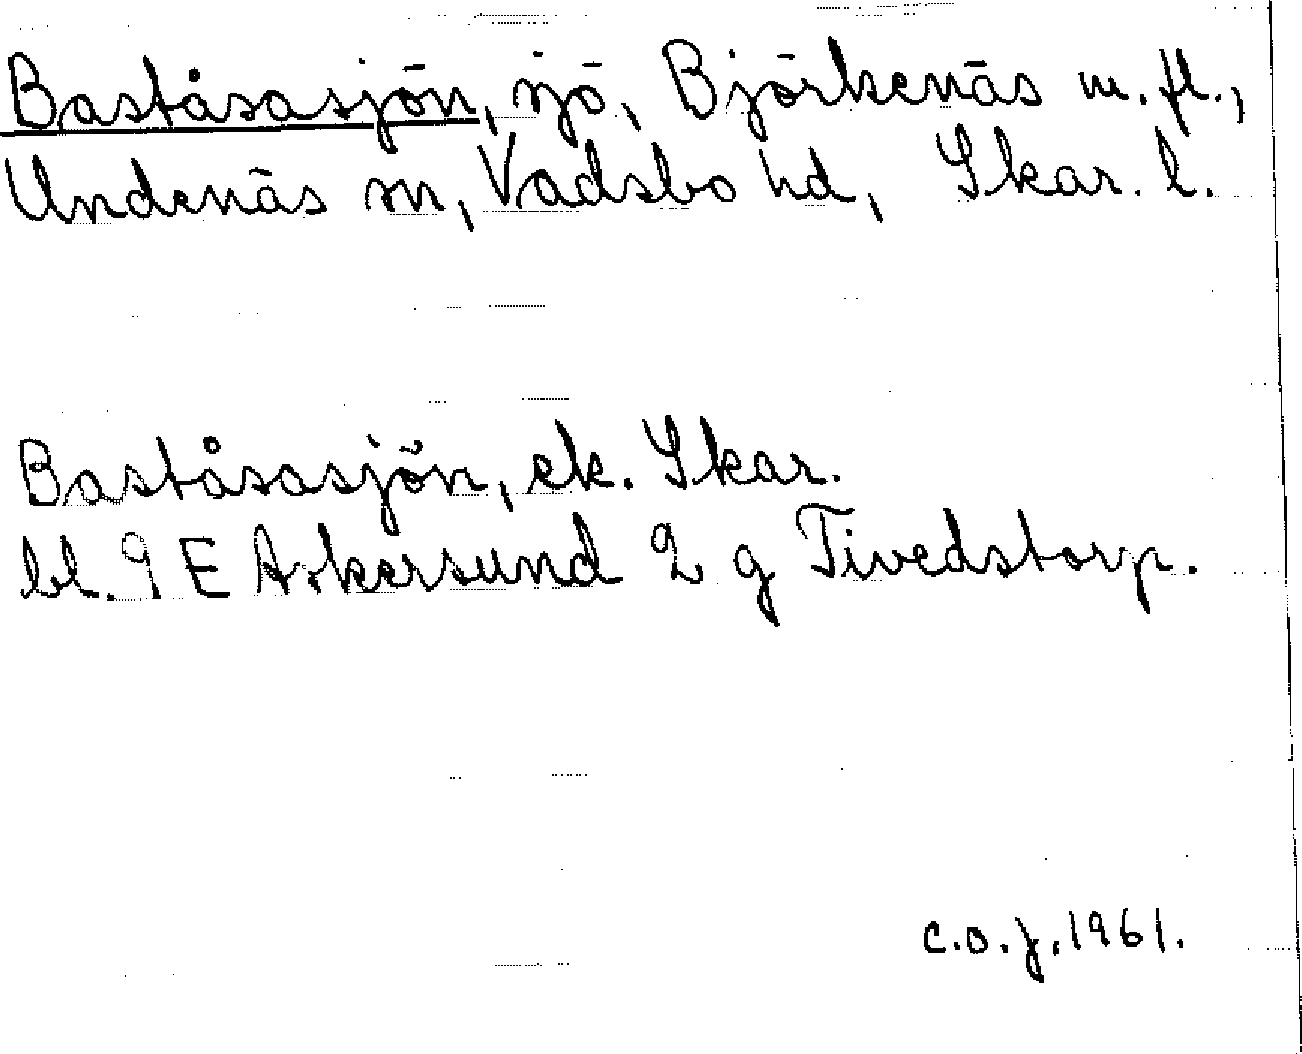 Baståsasjön, sjö, Björkenäs m. fl.,
Undenäs sn, Vadsbo hd, Skar. l.
Baståsasjön, ek. Skar.
bl. 9 E Askersund 2 g Tivedstorp.
C.O.J. 1961.